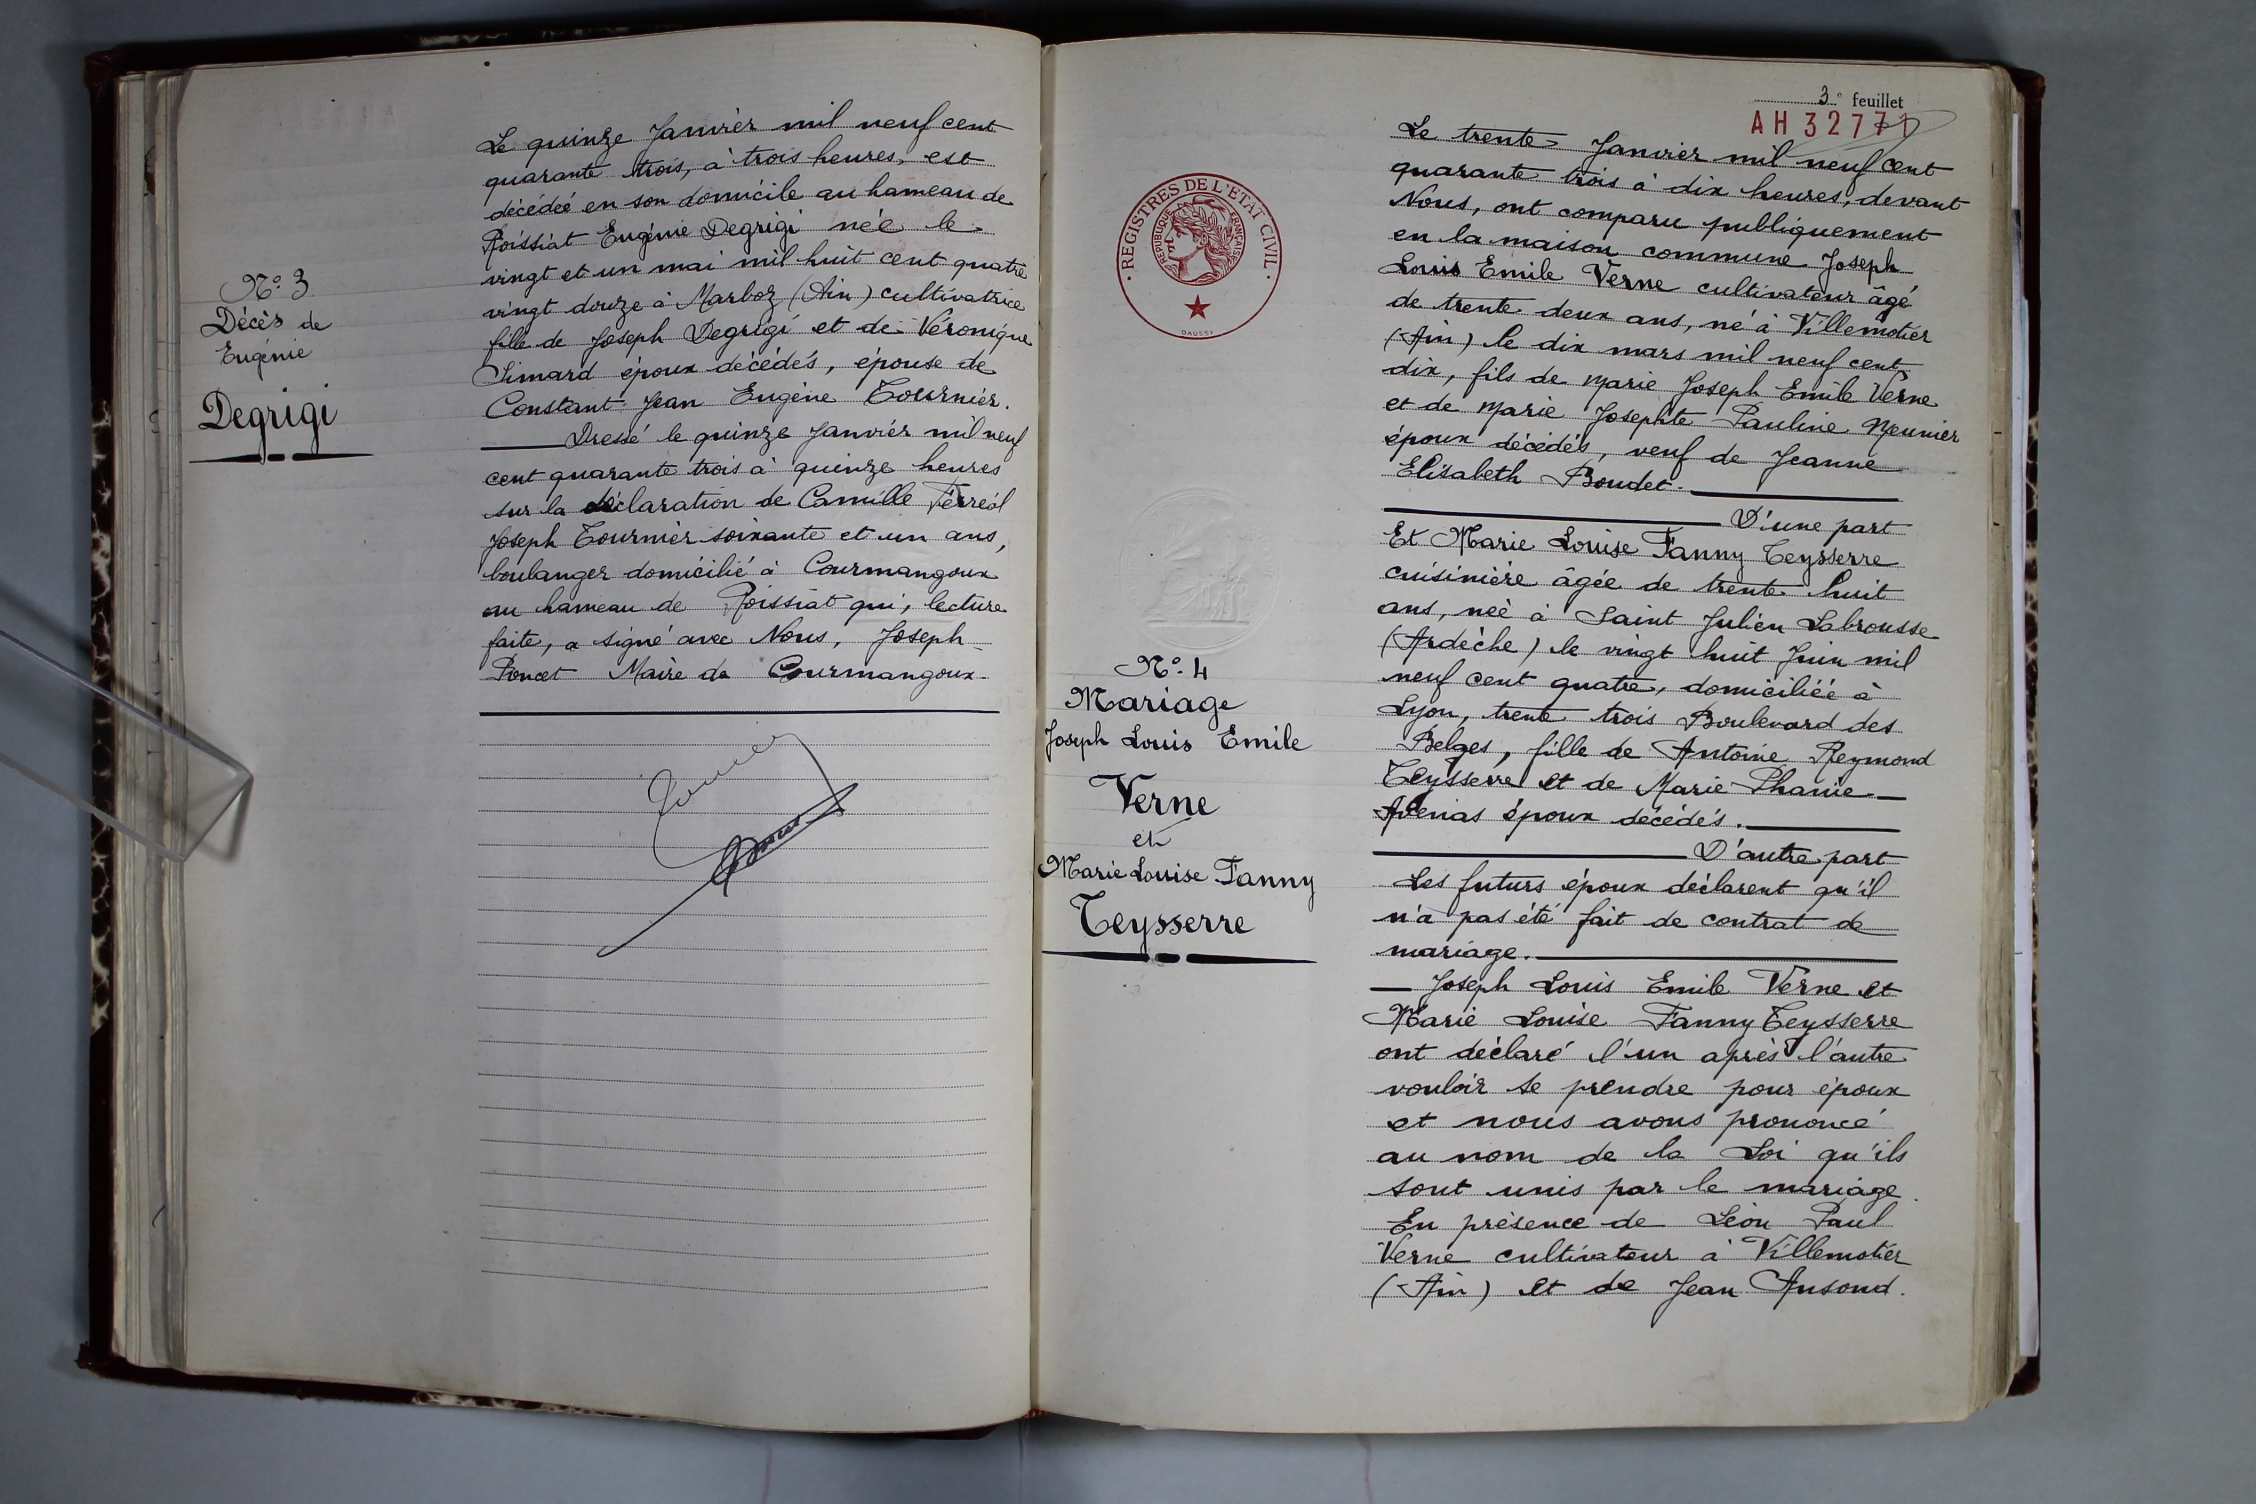 N° 3
Décès de
Eugénie
Degrigi
Le quinze Janvier mil neuf cent
quarante trois, à trois heures, est
décédée en son domicile au hameau de
Roissiat Eugénie Degrigi née le
vingt et un mai mil huit cent quatre
vingt douze à Marboz (Ain) cultivatrice
fille de Joseph Degrigi et de Véronique
Simard époux décédés, épouse de
Constant Jean Eugène Tournier.
Dressé le quinze Janvier mil neuf
cent quarante trois à quinze heures
sur la déclaration de Camille Ferréol
Joseph Tournier soixante et un ans,
boulanger domicilié à Courmangoux
au hameau de Roissiat qui, lecture
faite, a signé avec Nous, Joseph
Poncet Maire de Courmangoux.
3e feuillet
AH 32771
REGISTRES DE L'ETAT CIVIL
REPUBLIQUE FRANÇAISE
DAUSSY
N° 4
Mariage
Joseph Louis Emile
Verne
et
Marie Louise Fanny
Teysserre
Le trente Janvier mil neuf cent
quarante trois à dix heures, devant
Nous, ont comparu publiquement
en la maison commune Joseph
Louis Emile Verne cultivateur âgé
de trente deux ans, né à Villemotier
(Ain) le dix mars mil neuf cent
dix, fils de Marie Joseph Emile Verne
et de Marie Josephte Pauline Meunier
époux décédés, veuf de Jeanne
Elisabeth Boudet.
D'une part
Et Marie Louise Fanny Teysserre
cuisinière âgée de trente huit
ans, née à Saint Julien Labrousse
(Ardèche) le vingt huit Juin mil
neuf cent quatre, domiciliée à
Lyon, trente trois Boulevard des
Belges, fille de Antoine Reymond
Teysserre et de Marie Phanie
Avenas époux décédés.
D'autre part
Les futurs époux déclarent qu'il
n'a pas été fait de contrat de
mariage.
Joseph Louis Emile Verne et
Marie Louise Fanny Teysserre
ont déclaré l'un après l'autre
vouloir se prendre pour époux
et nous avons prononcé
au nom de la Loi qu'ils
sont unis par le mariage.
En présence de Léon Paul
Verne cultivateur à Villemotier
(Ain) et de Jean Ausond.